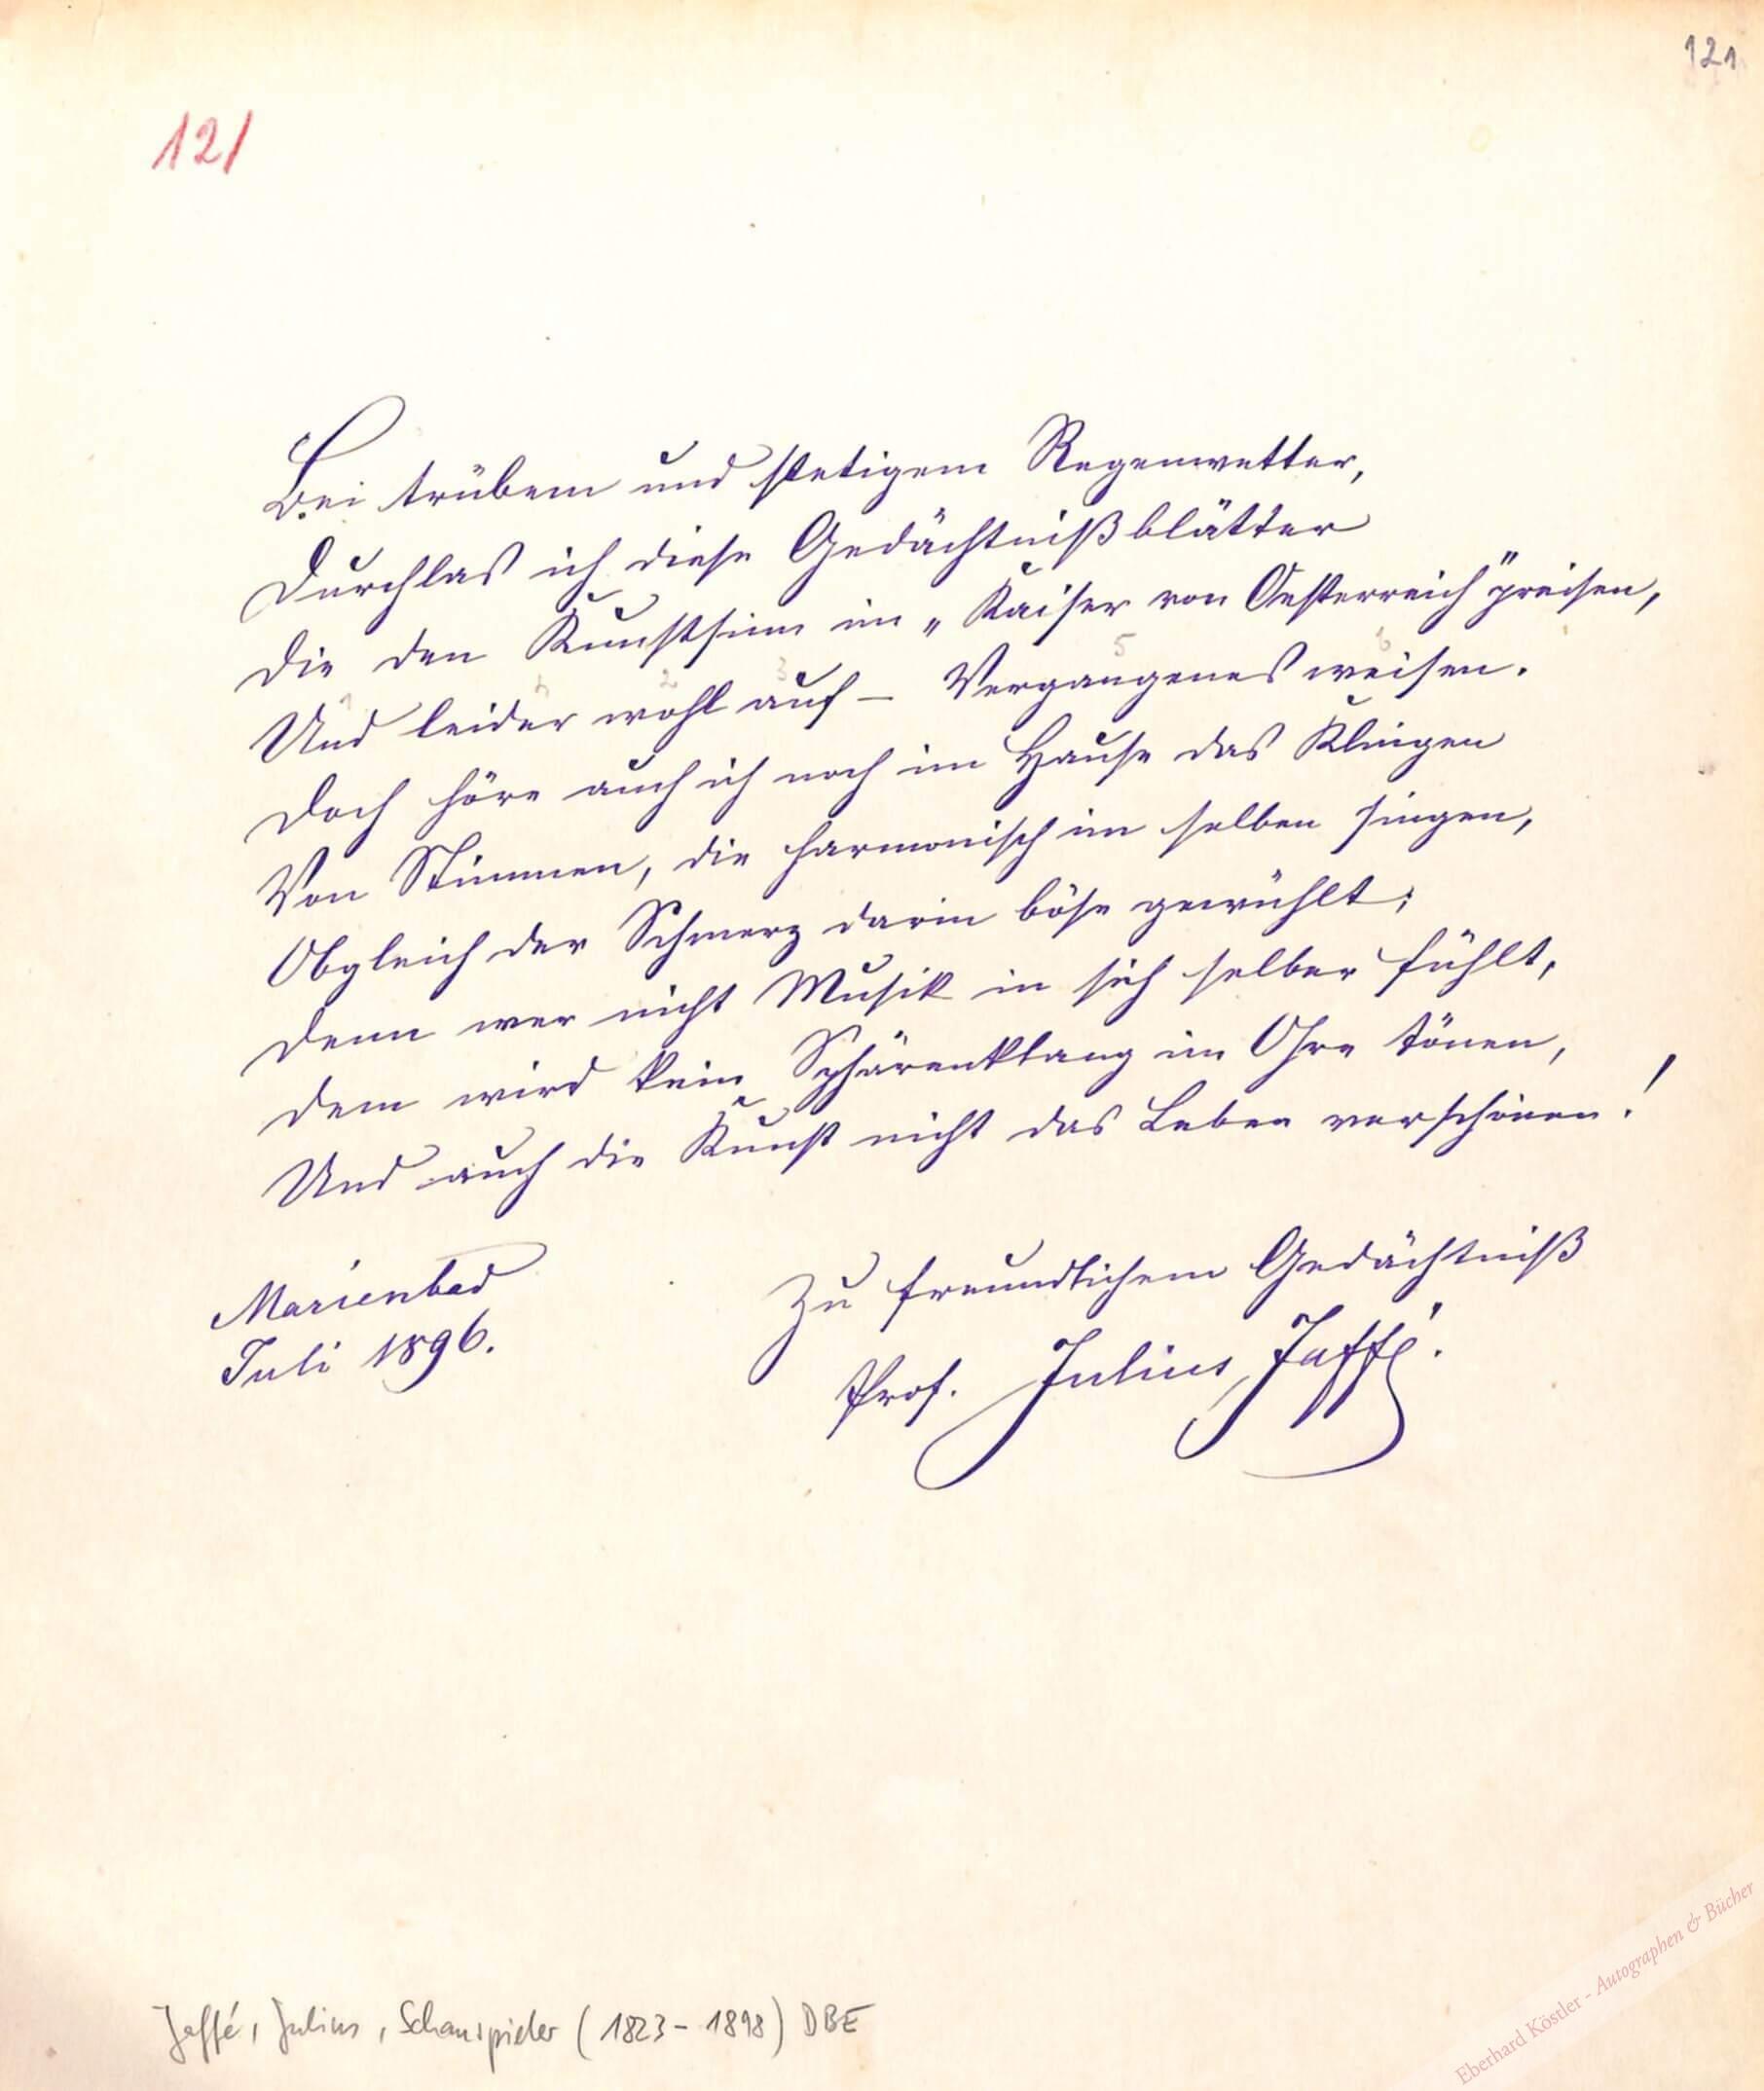 121
121
Bei trübem und stetigem Regenwetter,
Durchlas ich diese Gedächtnißblätter
Die den Kunstsinn im „Kaiser von Oesterreich" preisen,
Und leider wohl auf – Vergangenes weisen.
Doch höre auch ich noch im Hause das Klingen
Von Stimmen, die harmonisch im selben singen,
Obgleich der Schmerz darin böse gewühlt;
Denn wer nicht Musik in sich selber fühlt,
Dem wird kein Sphärenklang im Ohre tönen,
Und auch die Kunst nicht das Leben verschönen!
Zu freundlichem Gedächtniß
Marienbad
Juli 1896.
Prof. Julius Jaffé.
Jaffé, Julius, Schauspieler (1823–1898) DBE
Eberhard Köstler - Autographen & Bücher